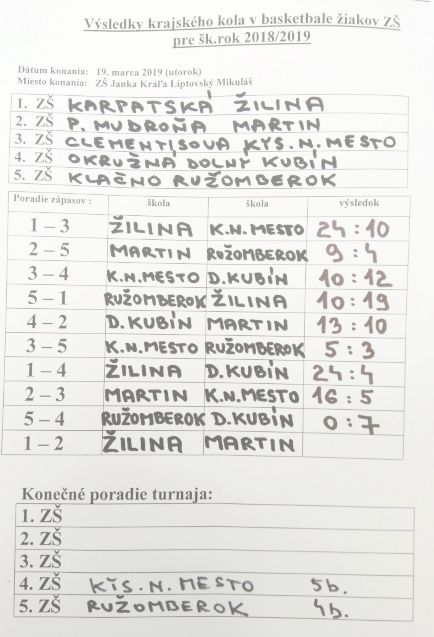 Výsledky krajského kola v basketbale žiakov ZŠ
pre šk.rok 2018/2019
Dátum konania: 19. marca 2019 (utorok)
Miesto konania: ZŠ Janka Kráľa Liptovský Mikuláš
1. ZŠ KARPATSKÁ ŽILINA
2. ZŠ P. MUDROŇA MARTIN
3. ZŠ CLEMENTISOVA KYS.N.MESTO
4. ZŠ OKRUŽNÁ DOLNÝ KUBÍN
5. ZŠ KLAČNO RUŽOMBEROK
Poradie zápasov : škola škola výsledok
1 – 3 ŽILINA K.N.MESTO 24 : 10
2 – 5 MARTIN RUŽOMBEROK 9 : 4
3 – 4 K.N.MESTO D.KUBÍN 10 : 12
5 – 1 RUŽOMBEROK ŽILINA 10 : 19
4 – 2 D.KUBÍN MARTIN 13 : 10
3 – 5 K.N.MESTO RUŽOMBEROK 5 : 3
1 – 4 ŽILINA D.KUBÍN 24 : 4
2 – 3 MARTIN K.N.MESTO 16 : 5
5 – 4 RUŽOMBEROK D.KUBÍN 0 : 7
1 – 2 ŽILINA MARTIN
Konečné poradie turnaja:
1. ZŠ
2. ZŠ
3. ZŠ
4. ZŠ KYS.N.MESTO 5b.
5. ZŠ RUŽOMBEROK 4b.